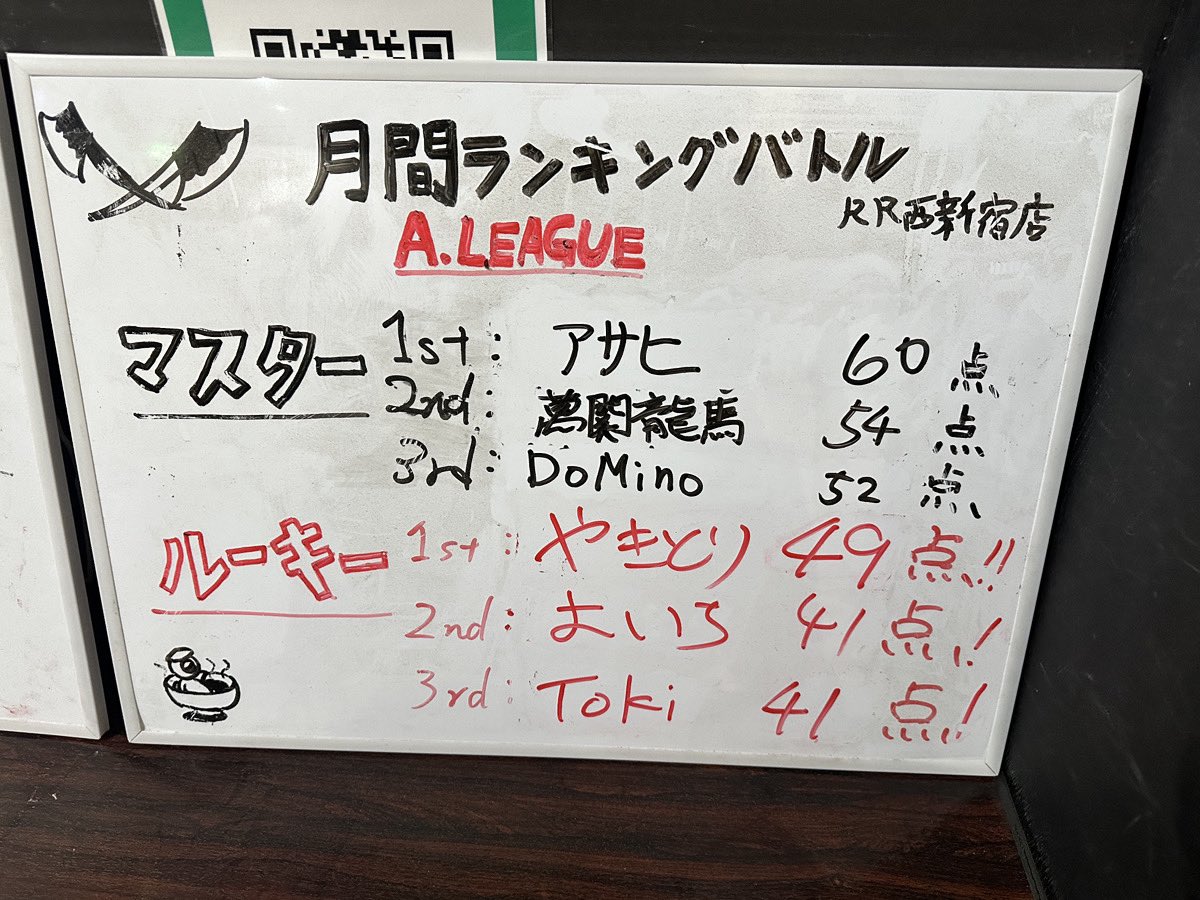 月間ランキングバトル
RR西新宿店
A.LEAGUE
マスター 1st: アサヒ 60点
2nd: 萬関龍馬 54点
3rd: DoMino 52点
ルーキー 1st: やきとり 49点!!
2nd: よいち 41点!
3rd: Toki 41点!